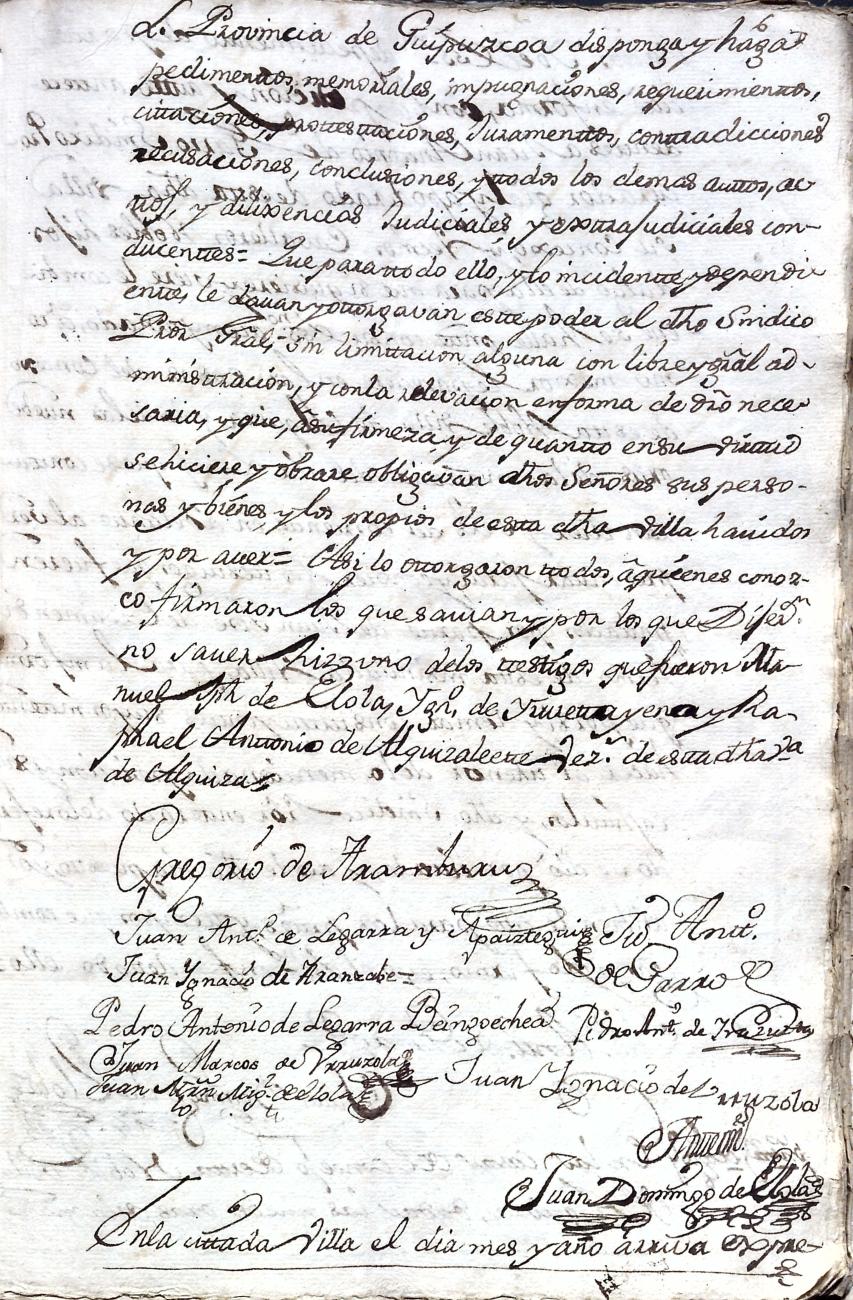 L. Provincia de Guipuzcoa disponga y haga
pedimentos, memoriales, impugnaciones, requerimientos,
cittaciones, prottestaciones, Juramenttos, conttradicciones
recusaciones, conclusiones, y ttodos los demas auttos, ac
ttos, y dilixencias Judiciales y exttraJudiciales con-
ducenttes= Que para ttodo ello, y lo incidentte, y dependi
entte, le davan y ottorgavan estte poder al dho Sindico
Pror Gral, sin limittacion alguna con libre y gral ad-
ministracion, y con la relevacion en forma de dro nece
saria, y que, a su firmeza, y de quantto en su virttud
se hiciere y obrare obligavan dhos Señores sus perso-
nas y bienes, y los propios de estta dha villa havidos
y por aver= Asi lo ottorgaron ttodos, a quienes conoz-
co firmaron los que savian y por los que Dijern
no saver hizo uno de los testigos que fueron Ma-
nuel Jph de Elola, Ygno de Yturrettayena y Ra-
phael Anttonio de Alquizalette Vezs de estta dha Va
de Alquiza
Gregorio de Aramburu
Juan Anto de Legarra y Apaiztegui Ju Anto.
Juan Ygnacio de Aranzabe= de Garro
Pedro Antonio de Legarra Bengoechea Pedro Ant. de
Juan Marcos de Urruzola
Juan Mrn Migl de Elola Juan Ygnacio de Urruzola
Antemi
Juan Domingo de Elola
En la cittada Villa el dia mes y año arriva expre-